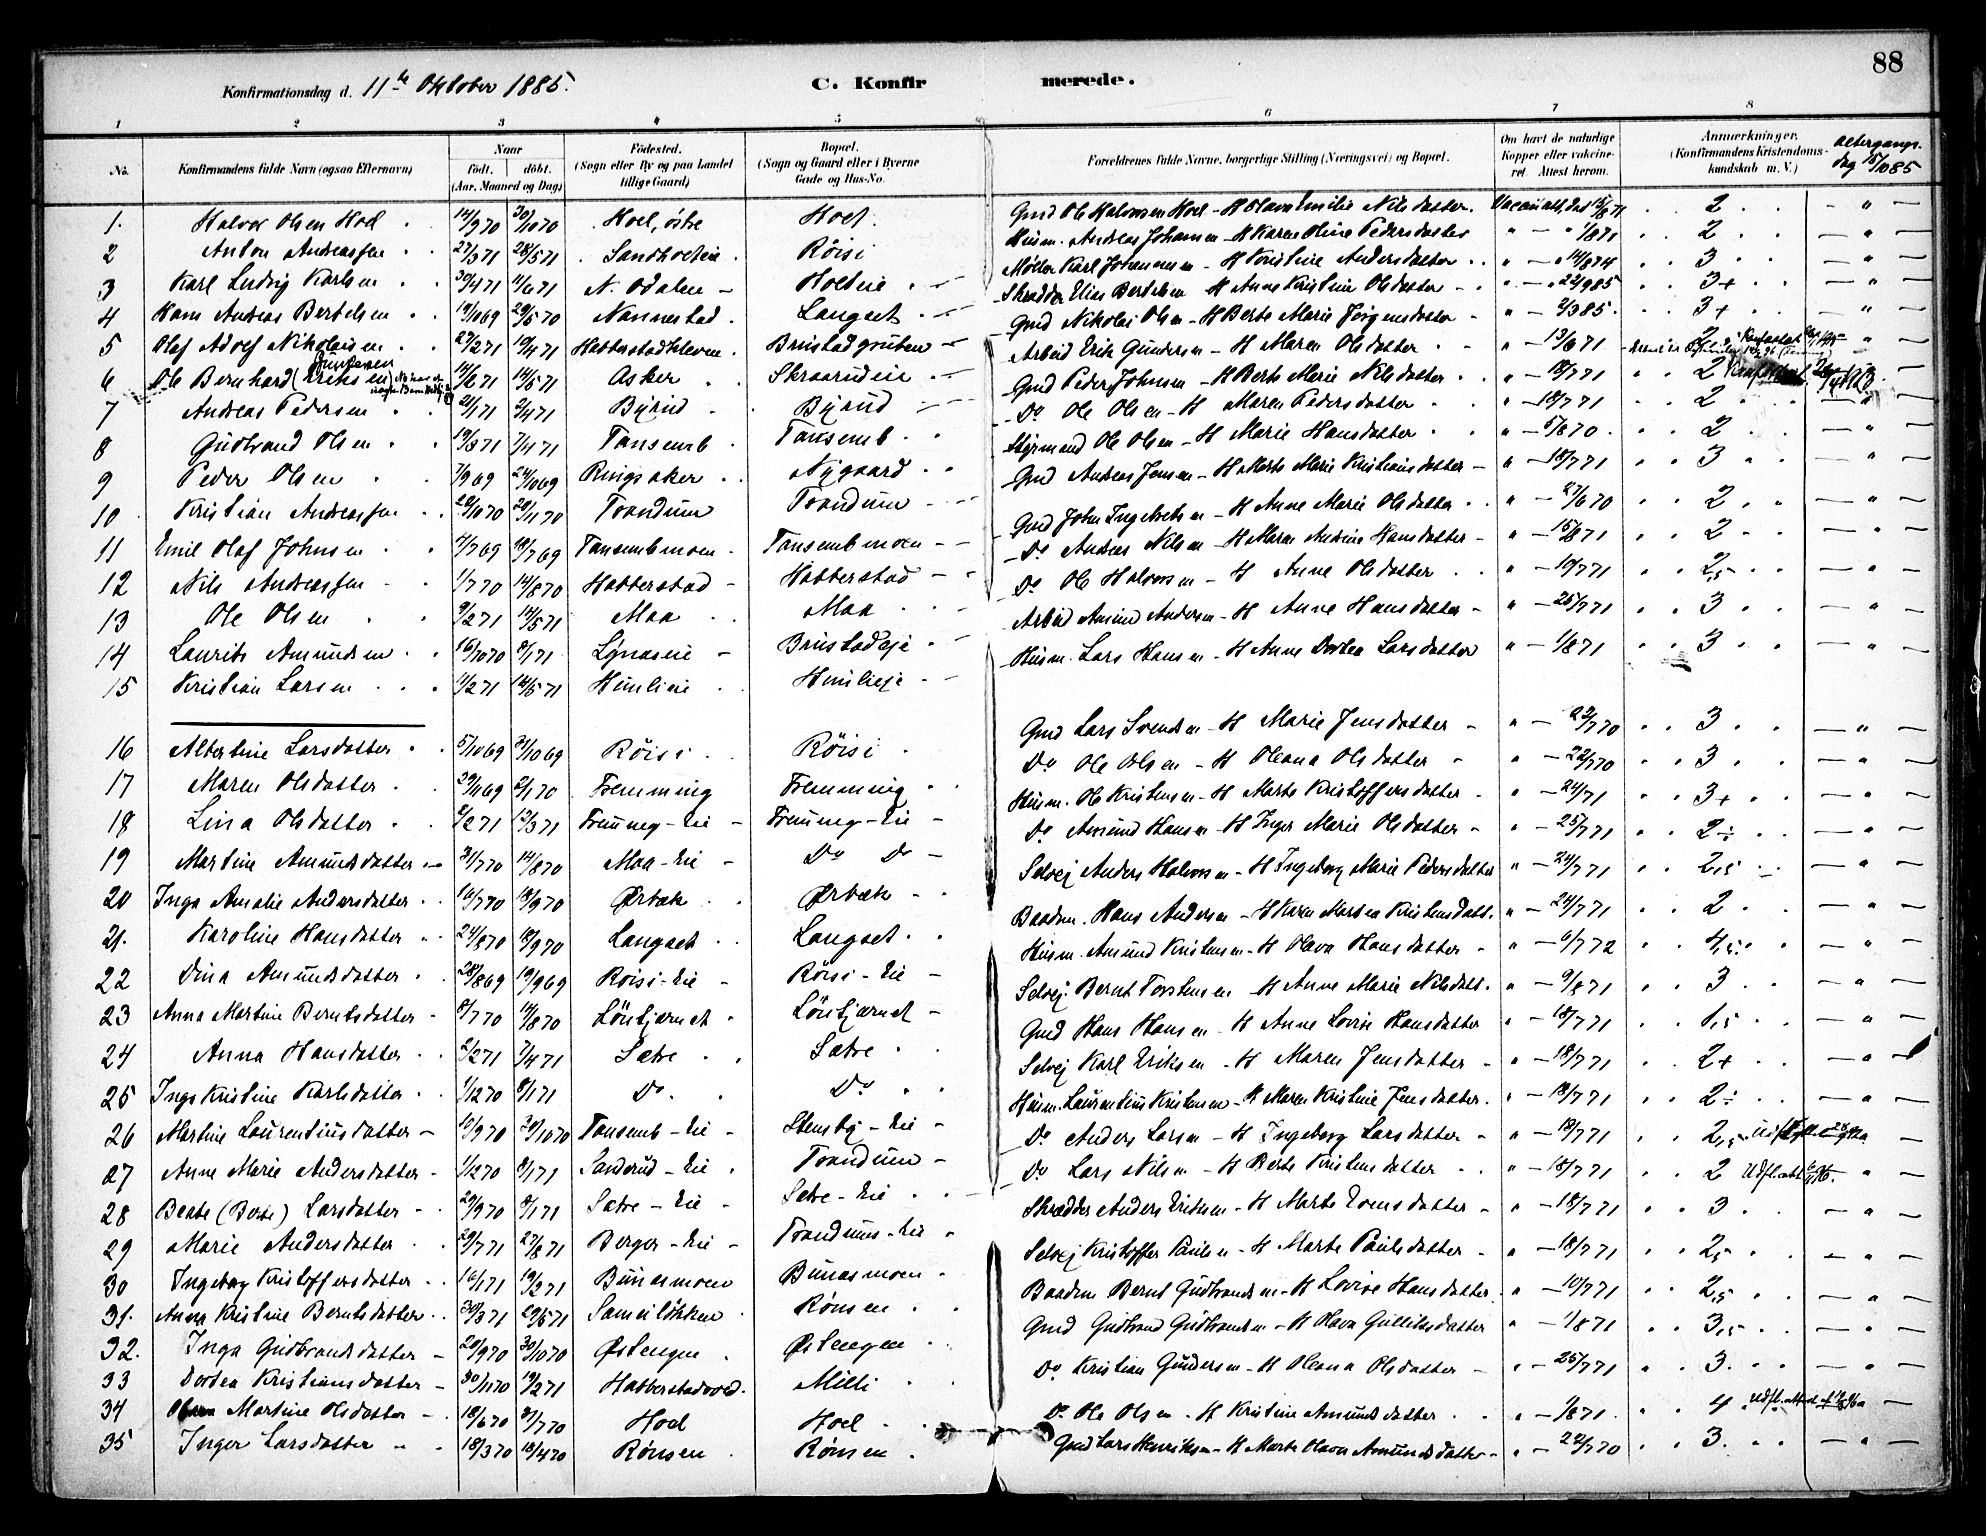 88
Konfirmationsdag d. 11te Oktober 1885.
C. Konfirmerede.
1 2 3 4 5 6 7 8
No. Konfirmandens fulde Navn (ogsaa Efternavn) Naar Født. døbt. (Aar, Maaned og Dag) Fødested. (Sogn eller By og paa Landet tillige Gaard) Bopæl. (Sogn og Gaard eller i Byerne Gade og Hus-No. Forældrenes fulde Navne, borgerlige Stilling (Næringsvei) og Bopæl. Om havt de naturlige Kopper eller vakcineret. Attest herom. Anmærkninger. (Konfirmandens Kristendomskundskab m. V.) Altergangsdag 18/1085
1. Halvor Olsen Hoel 14/970 30/1070 Hoel, østre Hoel. Gmd Ole Halvorsen Hoel - H Olava Emilie Nilsdatter. 2
2 Anton Andreassen 27/371 28/571 Sandholteie Røisi Husm. Andreas Johansen - H Karen Oline Pedersdatter 1/871 2
3 Karl Ludvig Karlsen 30/471 11/671 N. Odalen Holteie Møller Karl Johannesen - H Kristine Andersdatter 14/874 3
4 Hans Andreas Bertelsen 19/1069 29/570 Nannestad Langset Skrædder Elias Bertelsen - H Anne Kristine Olsdatter 3+
5 Olaf Adolf Nikolaisen 27/271 10/471 Habberstadkleven Brustadgruben Gmd Nikolai Olsen - H Berte Marie Jørgensdatter 2/385 3+
6 Ole Bernhard (Eriksen) Gundersen 14/571 Asker Skraarudeie Arbeid Erik Gundersen - H Maren Olsdatter 13/671 2
7 Andreas Pedersen 21/171 2/471 Byrud Byrud Gmd Peder Johnsen - H Berte Marie Nilsdatter 18/771 2
8 Gudbrand Olsen 19/371 7/471 Tansemb Tansemb Do Ole Olsen - H Maren Pedersdatter 18/771 2
9 Peder Olsen 7/969 24/1069 Ringsaker Nygaard Styrmand Ole Olsen - H Marie Hansdatter 5/870 2
10 Kristian Andreassen 20/1170 Trandum Trandum Gmd Andreas Jensen - H Marte Marie Kristiansdatter 18/771 3
11 Emil Olaf Johnsen 2/769 18/769 Tansembmoen Tansembmoen Gmd John Ingebretsen - H Anne Marie Olsdatter 27/670 2
12 Nils Andreassen 1/770 14/870 Habberstad Habberstad Do Andreas Nilsen - H Maren Andrine Hansdatter 15/871 2
13 Ole Olsen 9/271 14/571 Maa Maa Do Ole Halvorsen - H Anne Olsdatter 19/771 2,5
14 Laurits Amundsen 16/1070 8/171 Lynæseie Brustadeje Arbeid Amund Andersen - H Anne Hansdatter 25/771 3
15 Kristian Larsen 1/271 14/571 Humlieie Humlieje Husm. Lars Hansen - H Anne Dortea Larsdatter 1/871 3
16 Albertine Larsdatter 5/1069 31/1069 Røisi Røisi Gmd Lars Svendsen - H Marie Jensdatter 22/770 3
17 Maren Olsdatter 29/1169 2/170 Fremming Fremming Do Ole Olsen - H Oleana Olsdatter 22/770 3
18 Lina Olsdatter 2/271 12/371 Fremmg-Eie Fremmg-Eie Husm. Ole Kristensen - H Marte Kristoffersdatter 3+
19 Martine Amundsdatter 31/770 14/870 Maa-Eie Do Do Do Amund Hansen - H Inger Marie Olsdatter 25/771 2÷
20 Inga Amalie Andersdatter 16/770 18/970 Ørbæk Ørbæk Selvej Anders Halvorsen - H Ingeborg Marie Pedersdatter 24/771 2,5
21. Karoline Hansdatter 24/870 18/970 Langset Langset Baadm. Hans Andersen - H Karen Martea Kristensdatt. 24/771 2
22 Dina Amundsdatter 28/869 19/969 Røisi-Eie Røisi-Eie Husm. Amund Kristensen - H Olava Hansdatter 6/772
23 Anna Martine Berntsdatter 8/770 14/870 Lønstjernet Lønstjærnet Selvej. Bernt Torstensen - H Anne Marie Nilsdatt. 9/871 3
24 Anna Hansdatter 2/271 7/471 Sætre Sætre Gmd Hans Hansen - H Anne Lovise Hansdatter 18/771 1,5
25 Inga Kristine Karlsdatter 1/1270 8/171 Do Do Selvej Karl Eriksen - H Maren Jensdatter 18/771 2+
26 Martine Laurentiusdatter 10/970 30/1070 Tansemb-Eie Stensby-Eie Husm. Laurentius Kristensen - H Maren Kristine Jensdatter. 18/771 2÷
27 Anne Marie Andersdatter 1/1270 8/171 Sanderud-Eie Trandum Do Anders Larsen - H Ingeborg Larsdatter 18/771 2,5
28 Beate (Berte) Larsdatter 29/970 8/171 Sætre-Eie Setre-Eie Do Lars Nilsen - H Berte Kristensdatter 18/771 2
29 Marie Andersdatter 27/871 Berger-Eie Trandums-Eie Skrædder Anders Eriksen - H Marte Evensdatter 18/771 3
30 Ingeborg Kristoffersdatter 16/171 19/271 Bunæsmoen Bunæsmoen Selvej Kristoffer Paulsen - H Marte Paulsdatter 18/771 2,5
31. Anna Kristine Berntsdatter 30/371 29/571 Sameiløkken Rønsen Baadm Bernt Gudbrandsen - H Lovise Hansdatter 10/771 2,5
32. Inga Gudbrandsdatter 20/970 30/1070 Østengen Østengen Gmd Gudbrand Gudbrandsen - H Olava Gulliksdatter 1/871 3,5
33 Dortea Kristiansdatter 30/1170 19/271 Habberstadvad. Milli Do Kristian Gundersen - H Oleana Olsdatter 25/771 3
34 Martine Olsdatter 18/670 31/770 Hoel Hoel Do Ole Olsen - H Kristine Amundsdatter 1/871 4
35 Inger Larsdatter 18/370 18/470 Rønsen Rønsen Gmd Lars Henriksen - H Marte Olava Amundsdatter 22/770 3